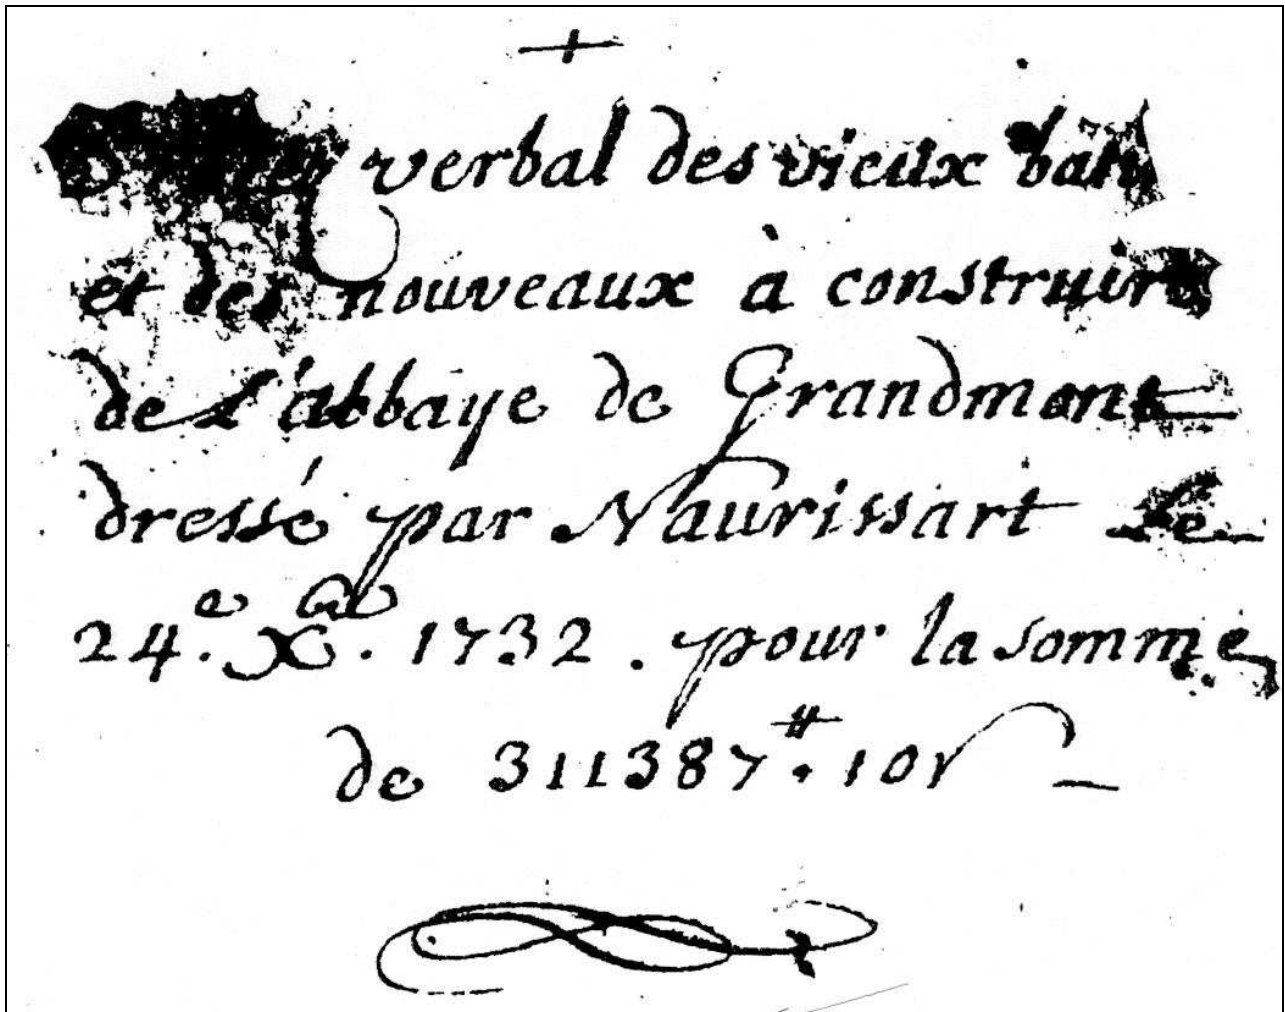 verbal des vieux
et des nouveaux à construire
de l'abbaye de Grandmont
dressé par Naurissart le
24.e Xbre. 1732. pour la somme
de 311387#. 10s